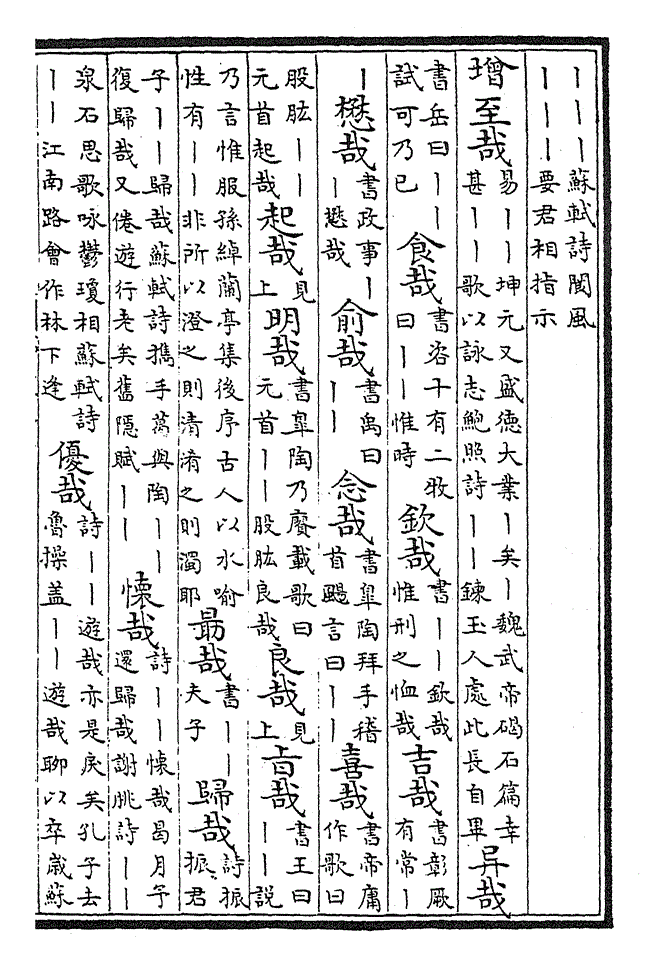 ｜｜｜蘇軾詩閬風
｜｜｜要君相指示
增至哉易｜｜坤元又盛德大業｜矣｜魏武帝碣石篇幸
甚｜｜歌以詠志鮑照詩｜｜鍊玉人處此長自畢异哉
書岳曰｜｜
試可乃已食哉書咨十有二牧
曰｜｜惟時欽哉書｜｜欽哉
惟刑之恤哉吉哉書彰厥
有常｜
｜懋哉書政事｜
｜懋哉俞哉書禹曰
｜｜念哉書皐陶拜手稽
首颺言曰｜｜喜哉書帝庸
作歌曰
股肱｜｜
元首起哉起哉見
上明哉書皐陶乃賡載歌曰
元首｜｜股肱良哉良哉見
上旨哉書王曰
｜｜說
乃言惟服孫綽蘭亭集後序古人以水喻
性有｜｜非所以澄之則清淆之則濁耶勗哉書｜｜
夫子歸哉詩振
振君
子｜｜歸哉蘇軾詩携手葛與陶｜｜
復歸哉又倦遊行老矣舊隱賦｜｜懷哉詩｜｜懷哉曷月予
還歸哉謝朓詩｜｜
泉石思歌咏鬱瓊相蘇軾詩
｜｜江南路會作林下逢優哉詩｜｜遊哉亦是戾矣孔子去
魯操盖｜｜遊哉聊以卒歲蘇